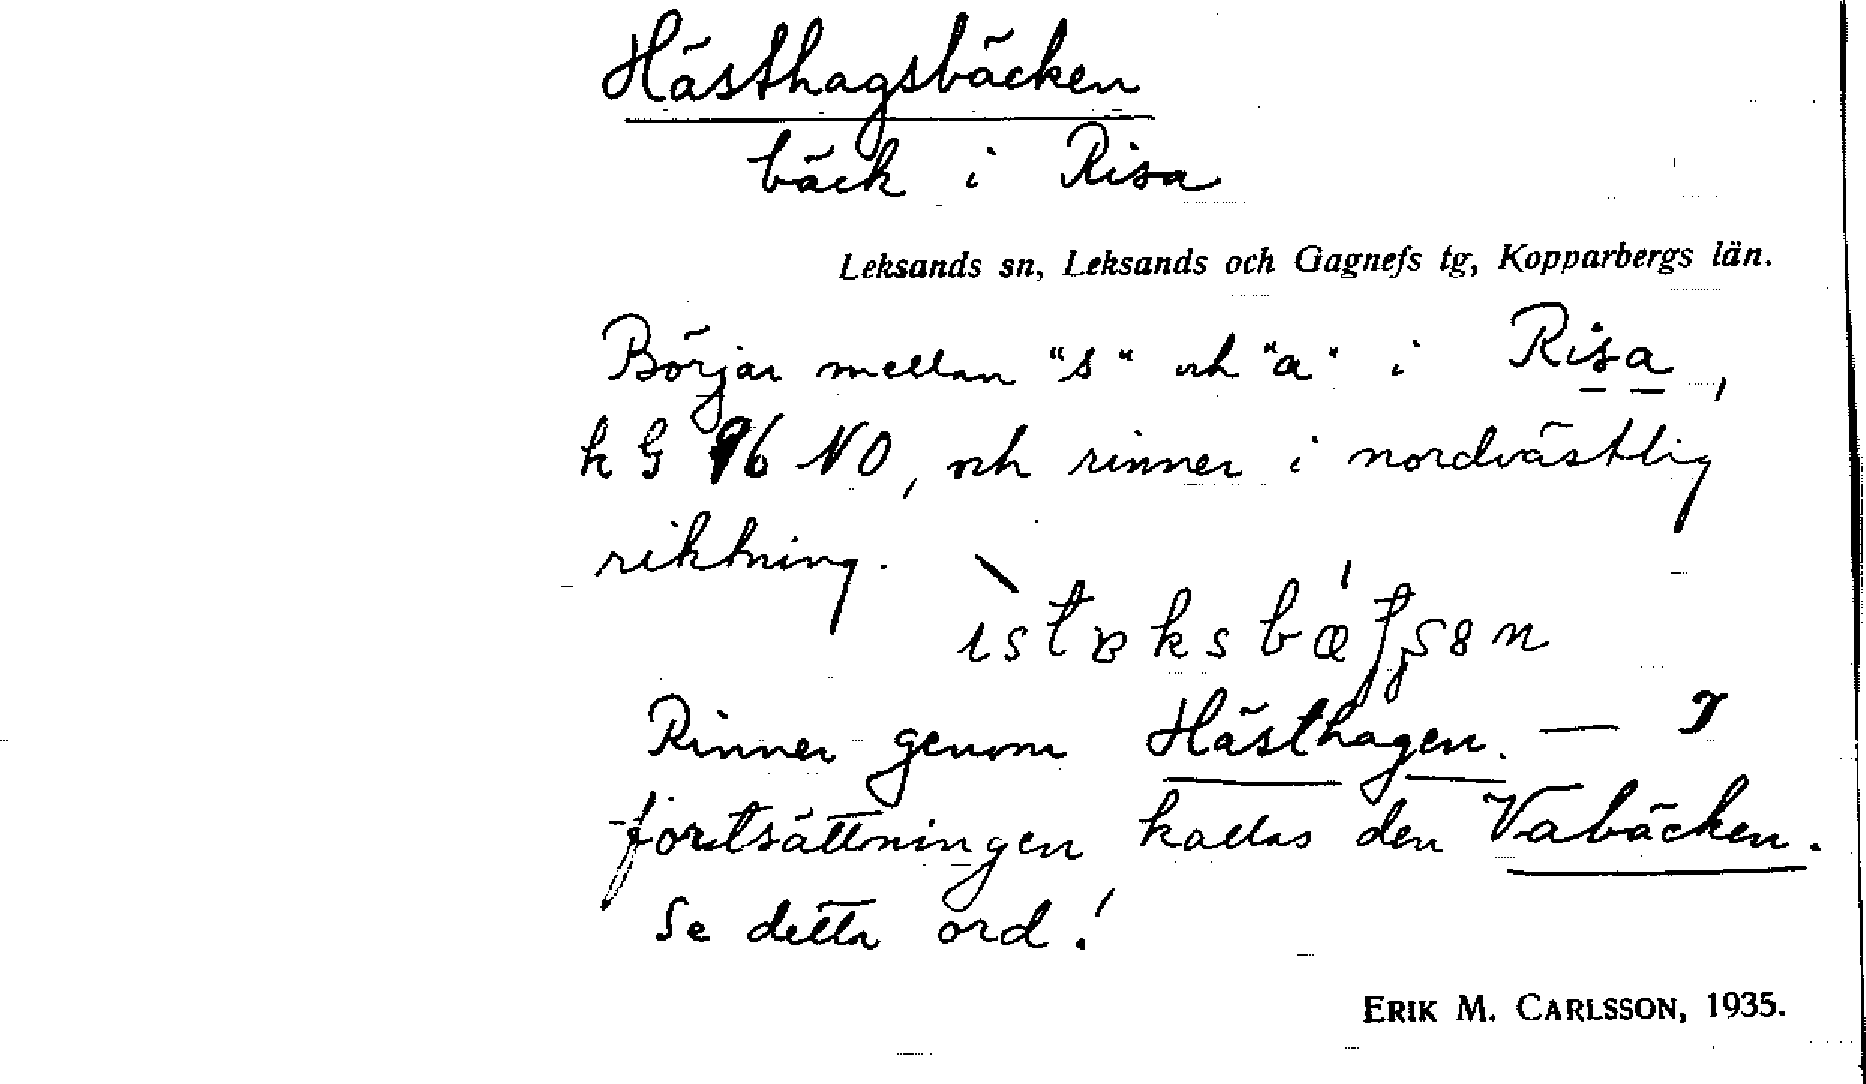 Hästhagsbäcken
bäck i Risa
Leksands sn, Leksands och Gagnefs tg, Kopparbergs län.
Börjar mellan "s" och "a" i Risa,
k G 96 NO, och rinner i nordvästlig
riktning.
Rinner genom Hästhagen. — I
fortsättningen kallas den Vabäcken.
Se detta ord!
ERIK M. CARLSSON, 1935.